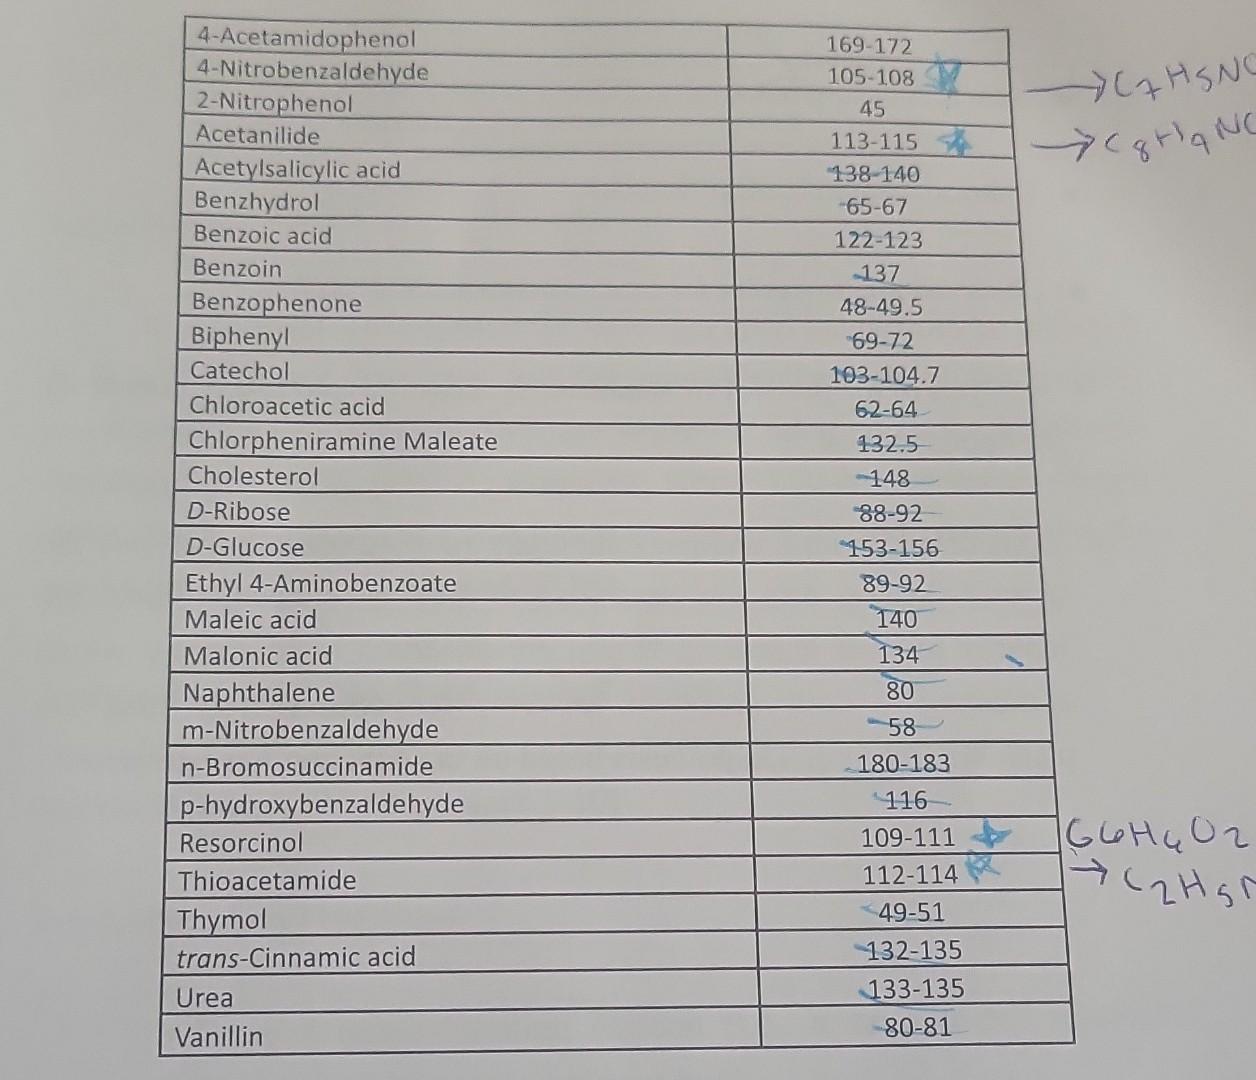 4-Acetamidophenol 169-172
4-Nitrobenzaldehyde 105-108 → C7H5NO
2-Nitrophenol 45
Acetanilide 113-115 → C8H9NO
Acetylsalicylic acid 138-140
Benzhydrol 65-67
Benzoic acid 122-123
Benzoin 137
Benzophenone 48-49.5
Biphenyl 69-72
Catechol 103-104.7
Chloroacetic acid 62-64
Chlorpheniramine Maleate 132.5
Cholesterol 148
D-Ribose 88-92
D-Glucose 153-156
Ethyl 4-Aminobenzoate 89-92
Maleic acid 140
Malonic acid 134
Naphthalene 80
m-Nitrobenzaldehyde 58
n-Bromosuccinamide 180-183
p-hydroxybenzaldehyde 116
Resorcinol 109-111 C6H4O2
Thioacetamide 112-114 → C2H5N
Thymol 49-51
trans-Cinnamic acid 132-135
Urea 133-135
Vanillin 80-81